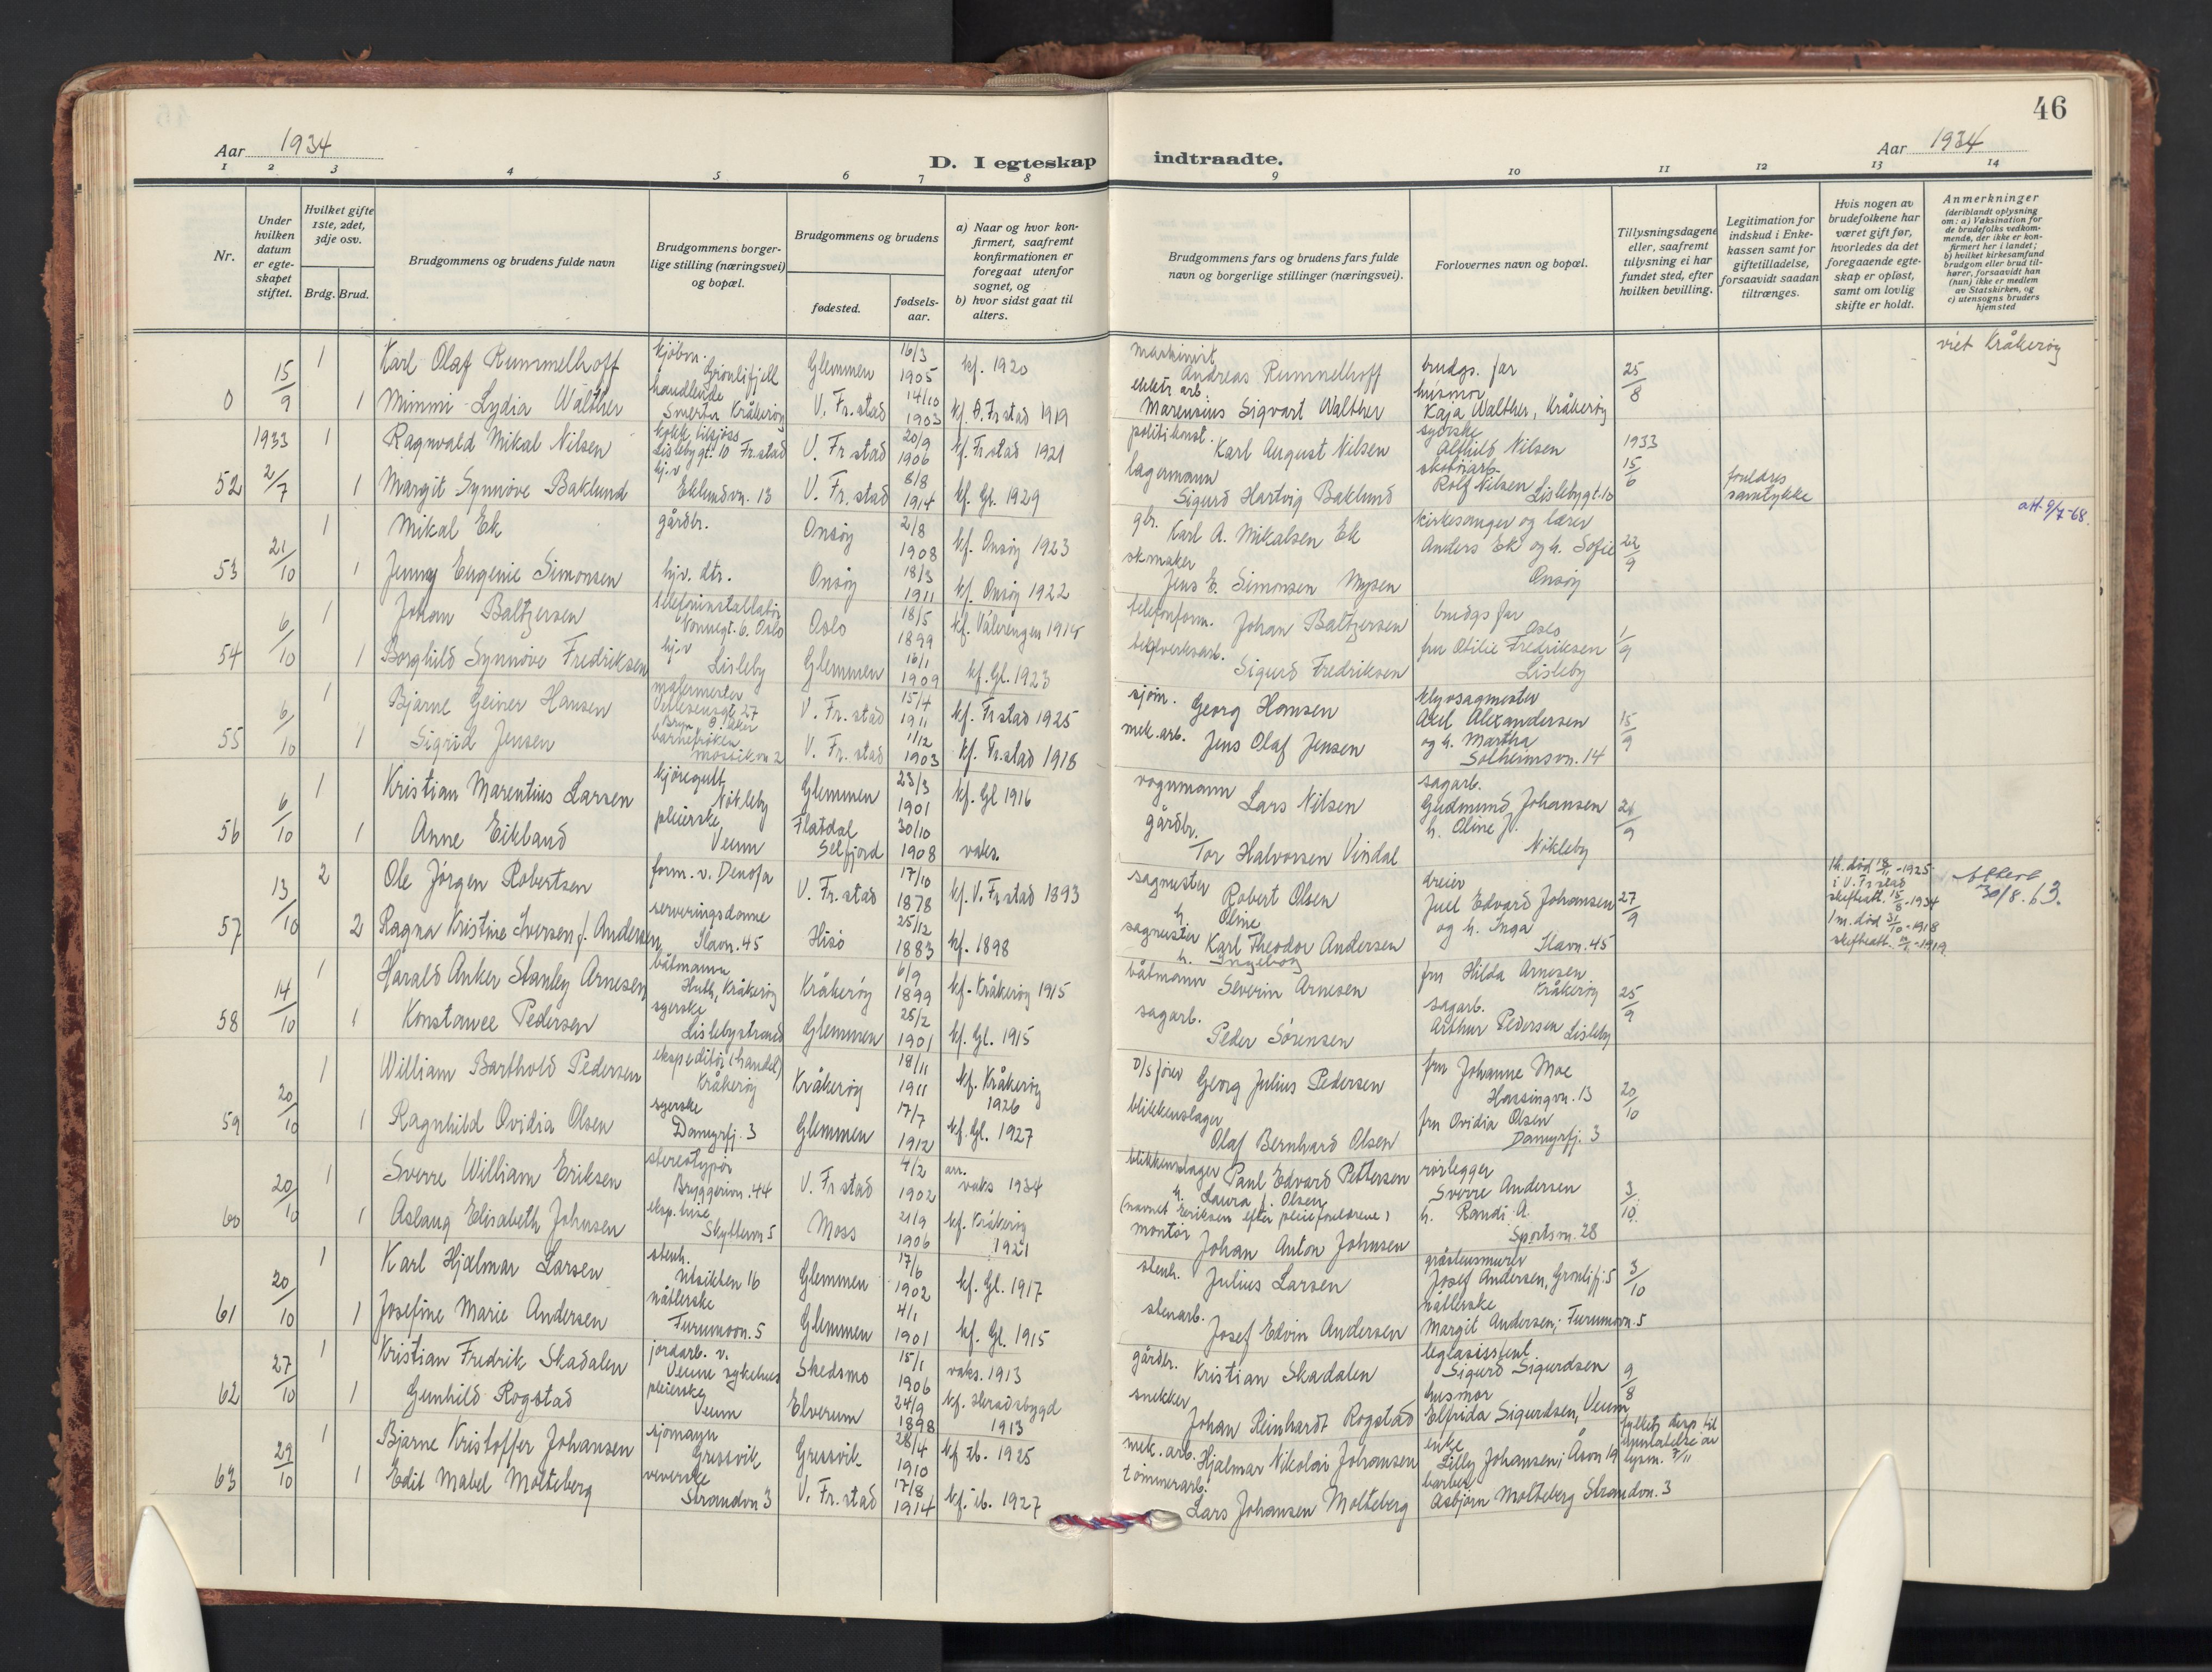 46
Aar 1934
D. I egteskap indtraadte.
Aar 1934
1 2 3 4 5 6 7 8 9 10 11 12 13 14
Nr.
Under hvilken datum er egteskapet stiftet.
Hvilket gifte 1ste, 2det, 3dje osv.
Brdg. Brud.
Brudgommens og brudens fulde navn
Brudgommens borgerlige stilling (næringsvei) og bopæl.
Brudgommens og brudens
fødested.
fødselsaar.
a) Naar og hvor konfirmert, saafremt konfirmationen er foregaat utenfor sognet, og
b) hvor sidst gaat til alters.
Brudgommens fars og brudens fars fulde navn og borgerlige stillinger (næringsvei).
Forlovernes navn og bopæl.
Tillysningsdagene eller, saafremt tillysning ei har fundet sted, efter hvilken bevilling.
Legitimation for indskud i Enkekassen samt for giftetilladelse, forsaavidt saadan tiltrænges.
Hvis nogen av brudefolkene har været gift før, hvorledes da det foregaaende egteskap er opløst, samt om lovlig skifte er holdt.
Anmerkninger (deriblandt oplysning om: a) Vaksination for de brudefolks vedkommende, der ikke er konfirmert her i landet; b) hvilket kirkesamfund brudgom eller brud tilhører, forsaavidt han (hun) ikke er medlem av Statskirken, og c) utensogns bruders hjemsted
0 15/9 1 Karl Olaf Rummelhoff kjøbm. Grønlifjell Glemmen 16/3 1905 kf. 1920 maskinist Andreas Rummelhoff brudgs. far 25/8 viet Kråkerøy
1 Mimmi Lydia Walther handlende Smerta Kråkerøy V. Fr.stad 14/10 1903 kf. Ø. Fr.stad 1919 elektr. arb. Marensius Sigvart Walther husmor Kaja Walther, Kråkerøy
52 1933 2/7 1 Ragnvald Mikal Nilsen kokk tilsjøss Lislebygt. 10 Fr.stad V. Fr.stad 20/9 1906 kf. Fr.stad 1921 politikonst. Karl August Nilsen syerske Alfhild Nilsen 1933 15/6
1 Margit Synnøve Baklund hj.v Eklundvn. 13 V. Fr.stad 8/8 1914 kf. Gl. 1929 lagermann Sigurd Hartvig Baklund skotøiarb. Rolf Nilsen Lislebygt. 10 foreldres samtykke
53 21/10 1 Mikal Ek gårdbr. Onsøy 2/8 1908 kf. Onsøy 1923 gbr. Karl A. Mikalsen Ek kirkesanger og lærer Anders Ek og h. Sofie Onsøy 22/9 att. 9/7-68.
1 Jenny Eugenie Simonsen hjv. dtr. Onsøy 18/3 1911 kf. Onsøy 1922 skomaker Jens E. Simonsen Mysen
54 6/10 1 Johan Baltzersen telefoninstallatør Normegt. 6. Oslo Oslo 18/5 1899 kf. Vålerengen 1914 telefonform. Johan Baltzersen brudgs far Oslo 1/9
1 Borghild Synnøve Fredriksen hj.v Lisleby Glemmen 16/1 1909 kf. Gl. 1923 teglverksarb. Sigurd Fredriksen fru Otilie Fredriksen Lisleby
55 6/10 1 Bjarne Geiner Hansen malermester V. Fr.stad 15/4 1911 kf. Fr.stad 1925 sjøm. Georg Hansen klyvsagmester Axel Alexandersen og h. Martha Solheimsvn. 14 15/9
1 Sigrid Jensen barnefrøken Mossikvn 2 V. Fr.stad 1/12 1903 kf. Fr.stad 1918 mek. arb. Jens Olaf Jensen
56 6/10 1 Kristian Marentius Larsen kjøregutt Nøkleby Glemmen 23/3 1901 kf. Gl 1916 vognmann Lars Nilsen sagarb. Gudmund Johansen h. Oline J. Nøkleby 21/9
1 Anne Eikland pleierske Veum Flatdal Selfjord 30/10 1908 vaks. gårdbr. Tor Halvorsen Vindal
57 13/10 2 Ole Jørgen Robertsen form. v. Denofa V. Fr.stad 17/10 1878 kf. V. Fr.stad 1893 sagmester Robert Olsen h. Oline dreier Juel Edvard Johansen og h. Inga Ilavn. 45 27/9 1h. død 18/11-1925 i V. Fr.stad skifteatt. 15/8-1934 attest 30/8. 63.
2 Ragna Kristine Iversen f. Andersen serveringsdame Ilavn. 45 Hisø 25/12 1883 kf. 1898 sagmester Karl Theodor Andersen h. Ingeborg 1 m. død 31/10-1918 skifteatt. -1919.
58 14/10 1 Harald Anker Stanley Arnesen båtmann Huth, Kråkerøy Kråkerøy 6/9 1899 kf. Kråkerøy 1915 båtmann Severin Arnesen fru Hilda Arnesen Kråkerøy 25/9
1 Konstanse Pedersen syerske Lislebystrand Glemmen 25/2 1901 kf. Gl. 1915 sagarb. Peder Sørensen sagarb. Arthur Pedersen Lisleby
59 20/10 1 William Barthold Pedersen ekspeditør (handel) Kråkerøy Kråkerøy 18/11 1911 kf. Kråkerøy 1926 D/S fører Georg Julius Pedersen fru Johanne Moe Hassingvn. 13 20/10
1 Ragnhild Ovidia Olsen syerske Damyrfj. 3 Glemmen 17/7 1912 kf. Gl. 1927 blikkenslager Olaf Bernhard Olsen fru Ovidia Olsen Damyrfj. 3
60 20/10 1 Sverre William Eriksen stereotypør Bryggerivn. 44 V. Fr.stad 4/2 1902 arr. vaks 1934 blikkenslager Paul Edvard Pettersen h. Laura f. Olsen (navnet Eriksen efter pleieforeldrene) rørlegger Sverre Andersen h. Randi A. Sportsvn. 28 3/10
1 Aslaug Elisabeth Johnsen eksp. trise Skyttervn 5 Moss 21/9 1906 kf. Kråkerøy 1921 montør Johan Anton Johnsen
61 20/10 1 Karl Hjalmar Larsen stenh. Utsikten 16 Glemmen 17/6 1902 kf. Gl. 1917 stenh. Julius Larsen gråstensmurer Josef Andersen, Grønlifj. 5 3/10
1 Josefine Marie Andersen nåtlerske Furumovn. 5 Glemmen 4/1 1901 kf. Gl. 1915 stenarb. Josef Edvin Andersen nåtlerske Margit Andersen, Furumovn. 5
62 27/10 1 Kristian Fredrik Skadalen jordarb. v. Veum sykehus Skedsmo 15/1 1906 vaks. 1913 gårdbr. Kristian Skadalen legeassistent Sigurd Sigurdsen 9/8
1 Gunhild Rogstad pleierske Veum Elverum 24/9 1898 kf. Heradsbygd 1913 snekker Johan Reinhardt Rogstad husmor Elfrida Sigurdsen, Veum
63 29/10 1 Bjarne Kristoffer Johansen sjømann Gressvik Gressvik 28/4 1910 kf. ib. 1925 mek. arb. Hjalmar Nikolai Johansen enke Lilly Johansen, Åsvn 19 fylkets disp. til unnlatelse av lysn. 7/11
1 Edit Mabel Molteberg veverske Strandvn 3 V. Fr.stad 17/8 1914 kf. ib. 1927 tømmerarb. Lars Johansen Molteberg barber Asbjørn Molteberg Strandvn. 3